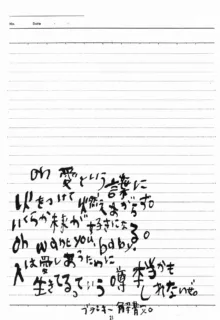 No.
Date
oh 愛という言葉に
火をつけて燃えあがらす。
いくらか球が好きになる。
oh want you, baby。
人は愛しあうために
生きてるっていう噂
本当かもしれないぜ。
解散。